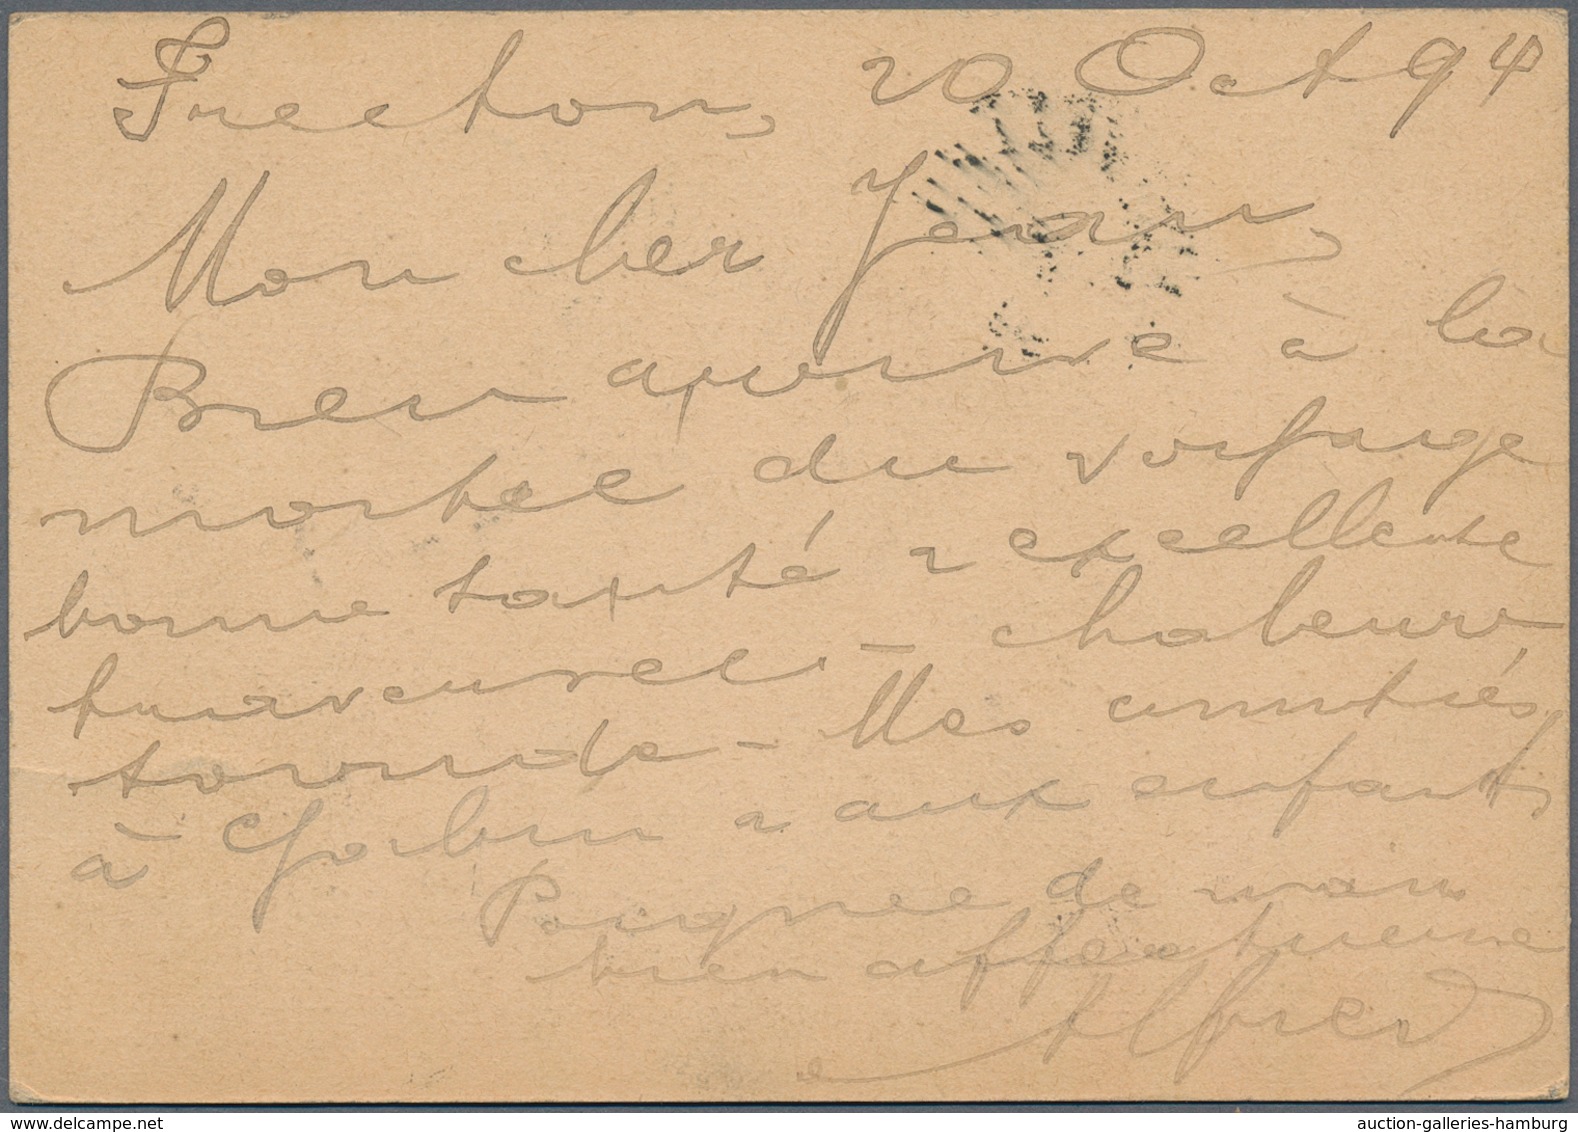 Freeton, 20 Oct 94
Mon cher Jean,
Bien arrivé à la
moitié du voyage
bonne santé & excellente
traversée - chaleur
torride - Mes amitiés
à & aux enfants
Poignée de main
bien affectueuse
Alfred
auction-galleries-hamburg